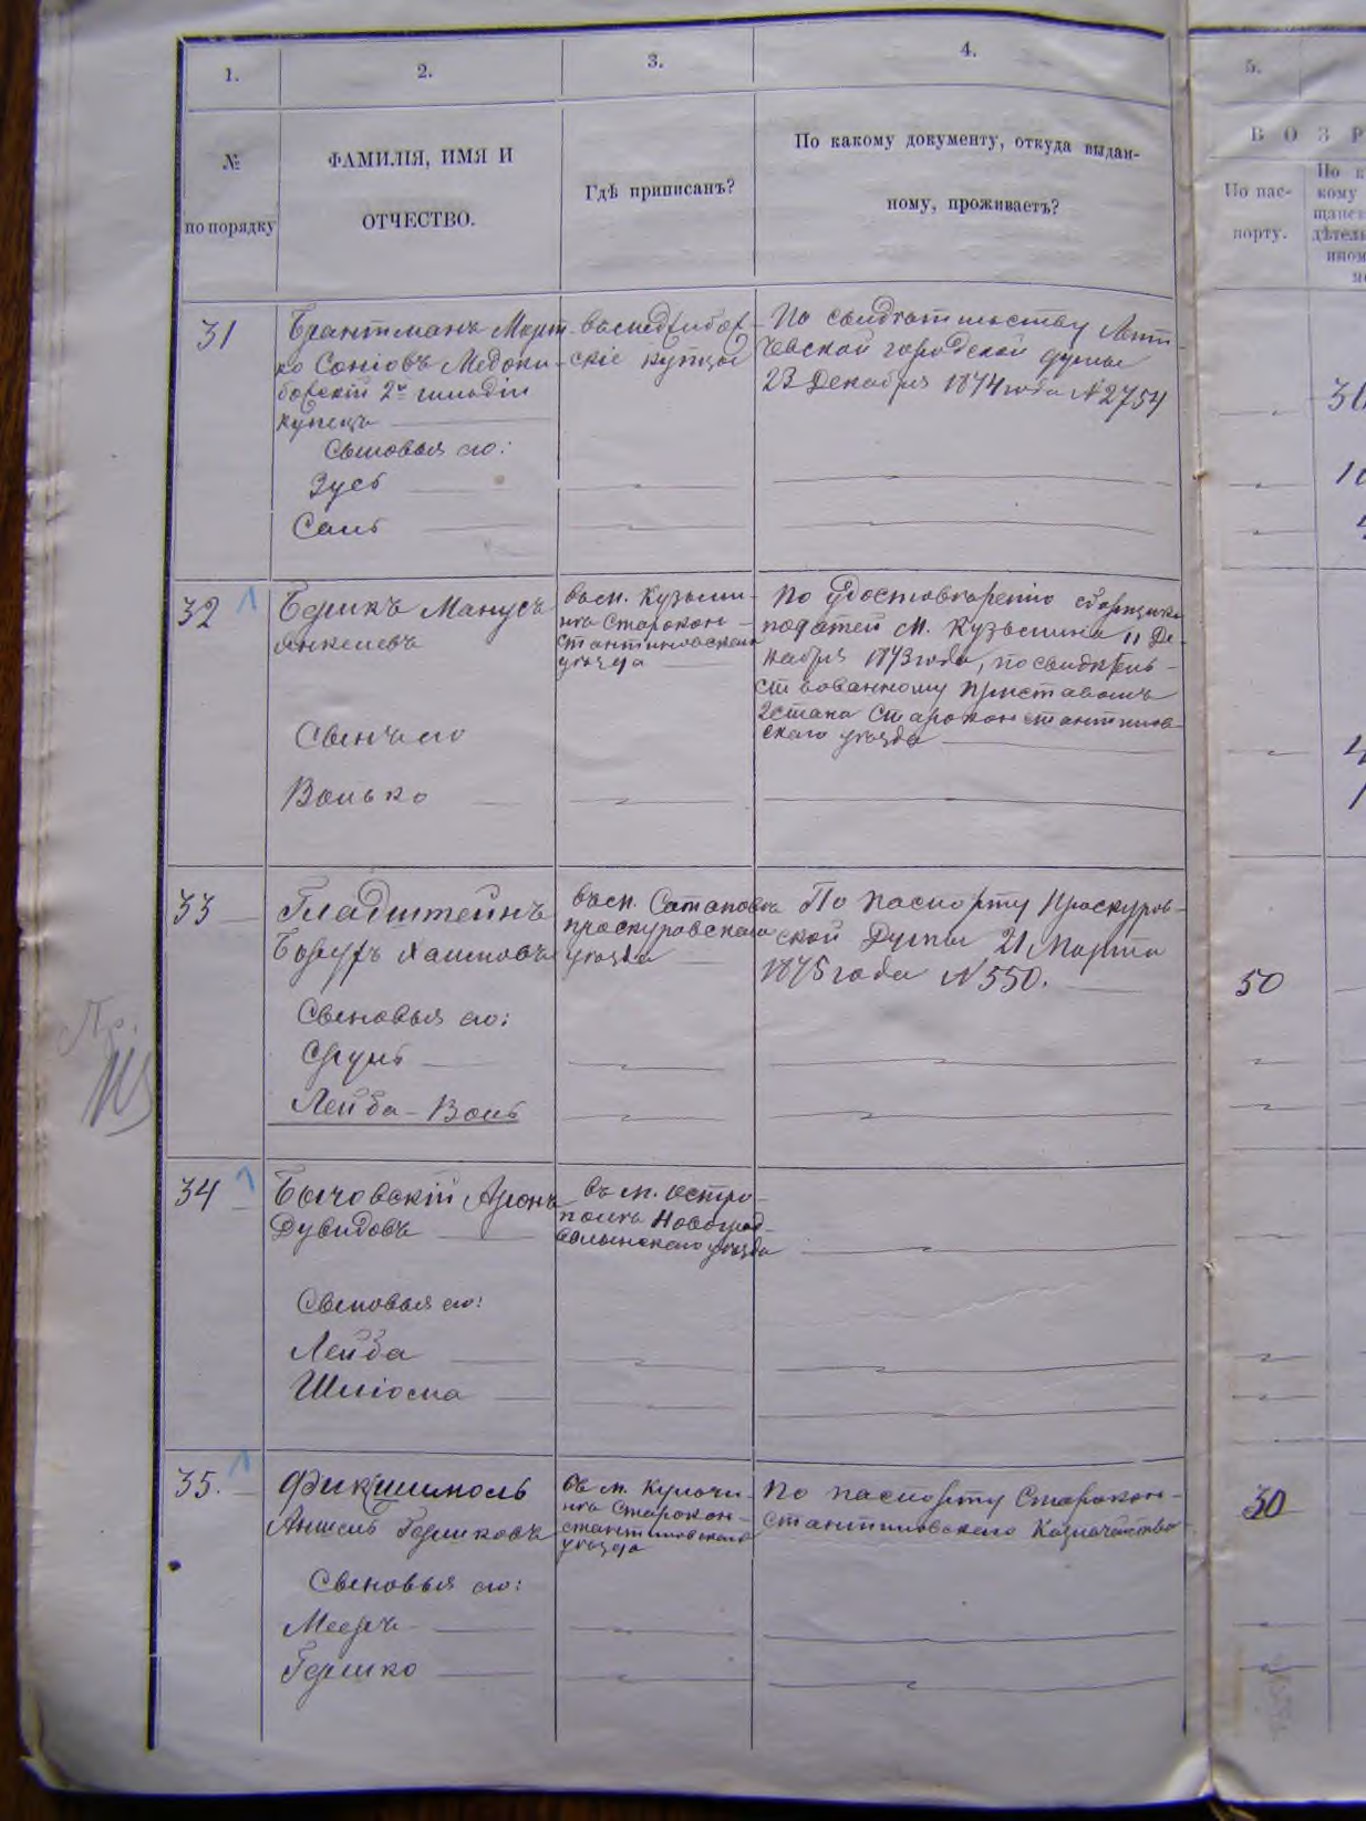 1.
2.
3.
4.
5.
№
по порядку
ФАМИЛІЯ, ИМЯ И
ОТЧЕСТВО.
Гдѣ приписанъ?
По какому документу, откуда выдан-
ному, проживаетъ?
ВОЗР
По пас-
порту.
31
Брантманъ
2й гильдіи
купецъ
Сыновья его:
Зусь
Сань
купцы
По свидѣтельству Лети-
чевской городской думы
23 Декабря 1874 года №2754
32
Берикъ Манусъ
Янкелевъ
Сынъ его
Волько
въ м. Кузьми-
нѣ Старокон-
стантиновскаго
уѣзда
По удостовѣренію сборщика
податей м. Кузьмина 11 Де-
кабря 1873 года, по свидѣтель-
ствованному приставомъ
2 стана Староконстантинов-
скаго уѣзда
33
Гладштейнъ
Борухъ Хаимовъ
Сыновья его:
Сруль
Лейба-Воль
въ м. Сатановѣ
проскуровскаго
уѣзда
По паспорту Проскуров-
ской Думы 21 Марта
1875 года №550.
50
34
Бычовскій Аронъ
Дувидовъ
Сыновья его:
Лейба
Шліома
въ м. Остро-
полѣ Новоград-
волынскаго уѣзда
35.
Аншель Гершковъ
Сыновья его:
Мееръ
Гершко
въ м.
Старокон-
стантиновскаго
уѣзда
По паспорту Старокон-
стантиновскаго Казначейства
30